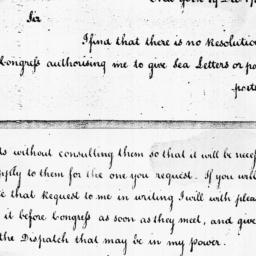 New York 19 Dec 17
Sir
I find that there is no Resolution
Congress authorising me to give Sea Letters or
ports without consulting them so that it will be
apply to them for the one you request. If you will
that Request to me in writing I will with
it before Congress as soon as they meet, and give
the Dispatch that may be in my power.